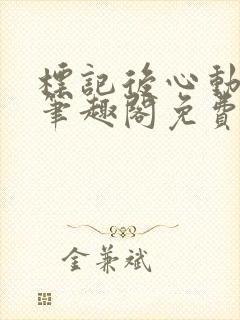 標記後心動
筆趣閣免費
金兼斌